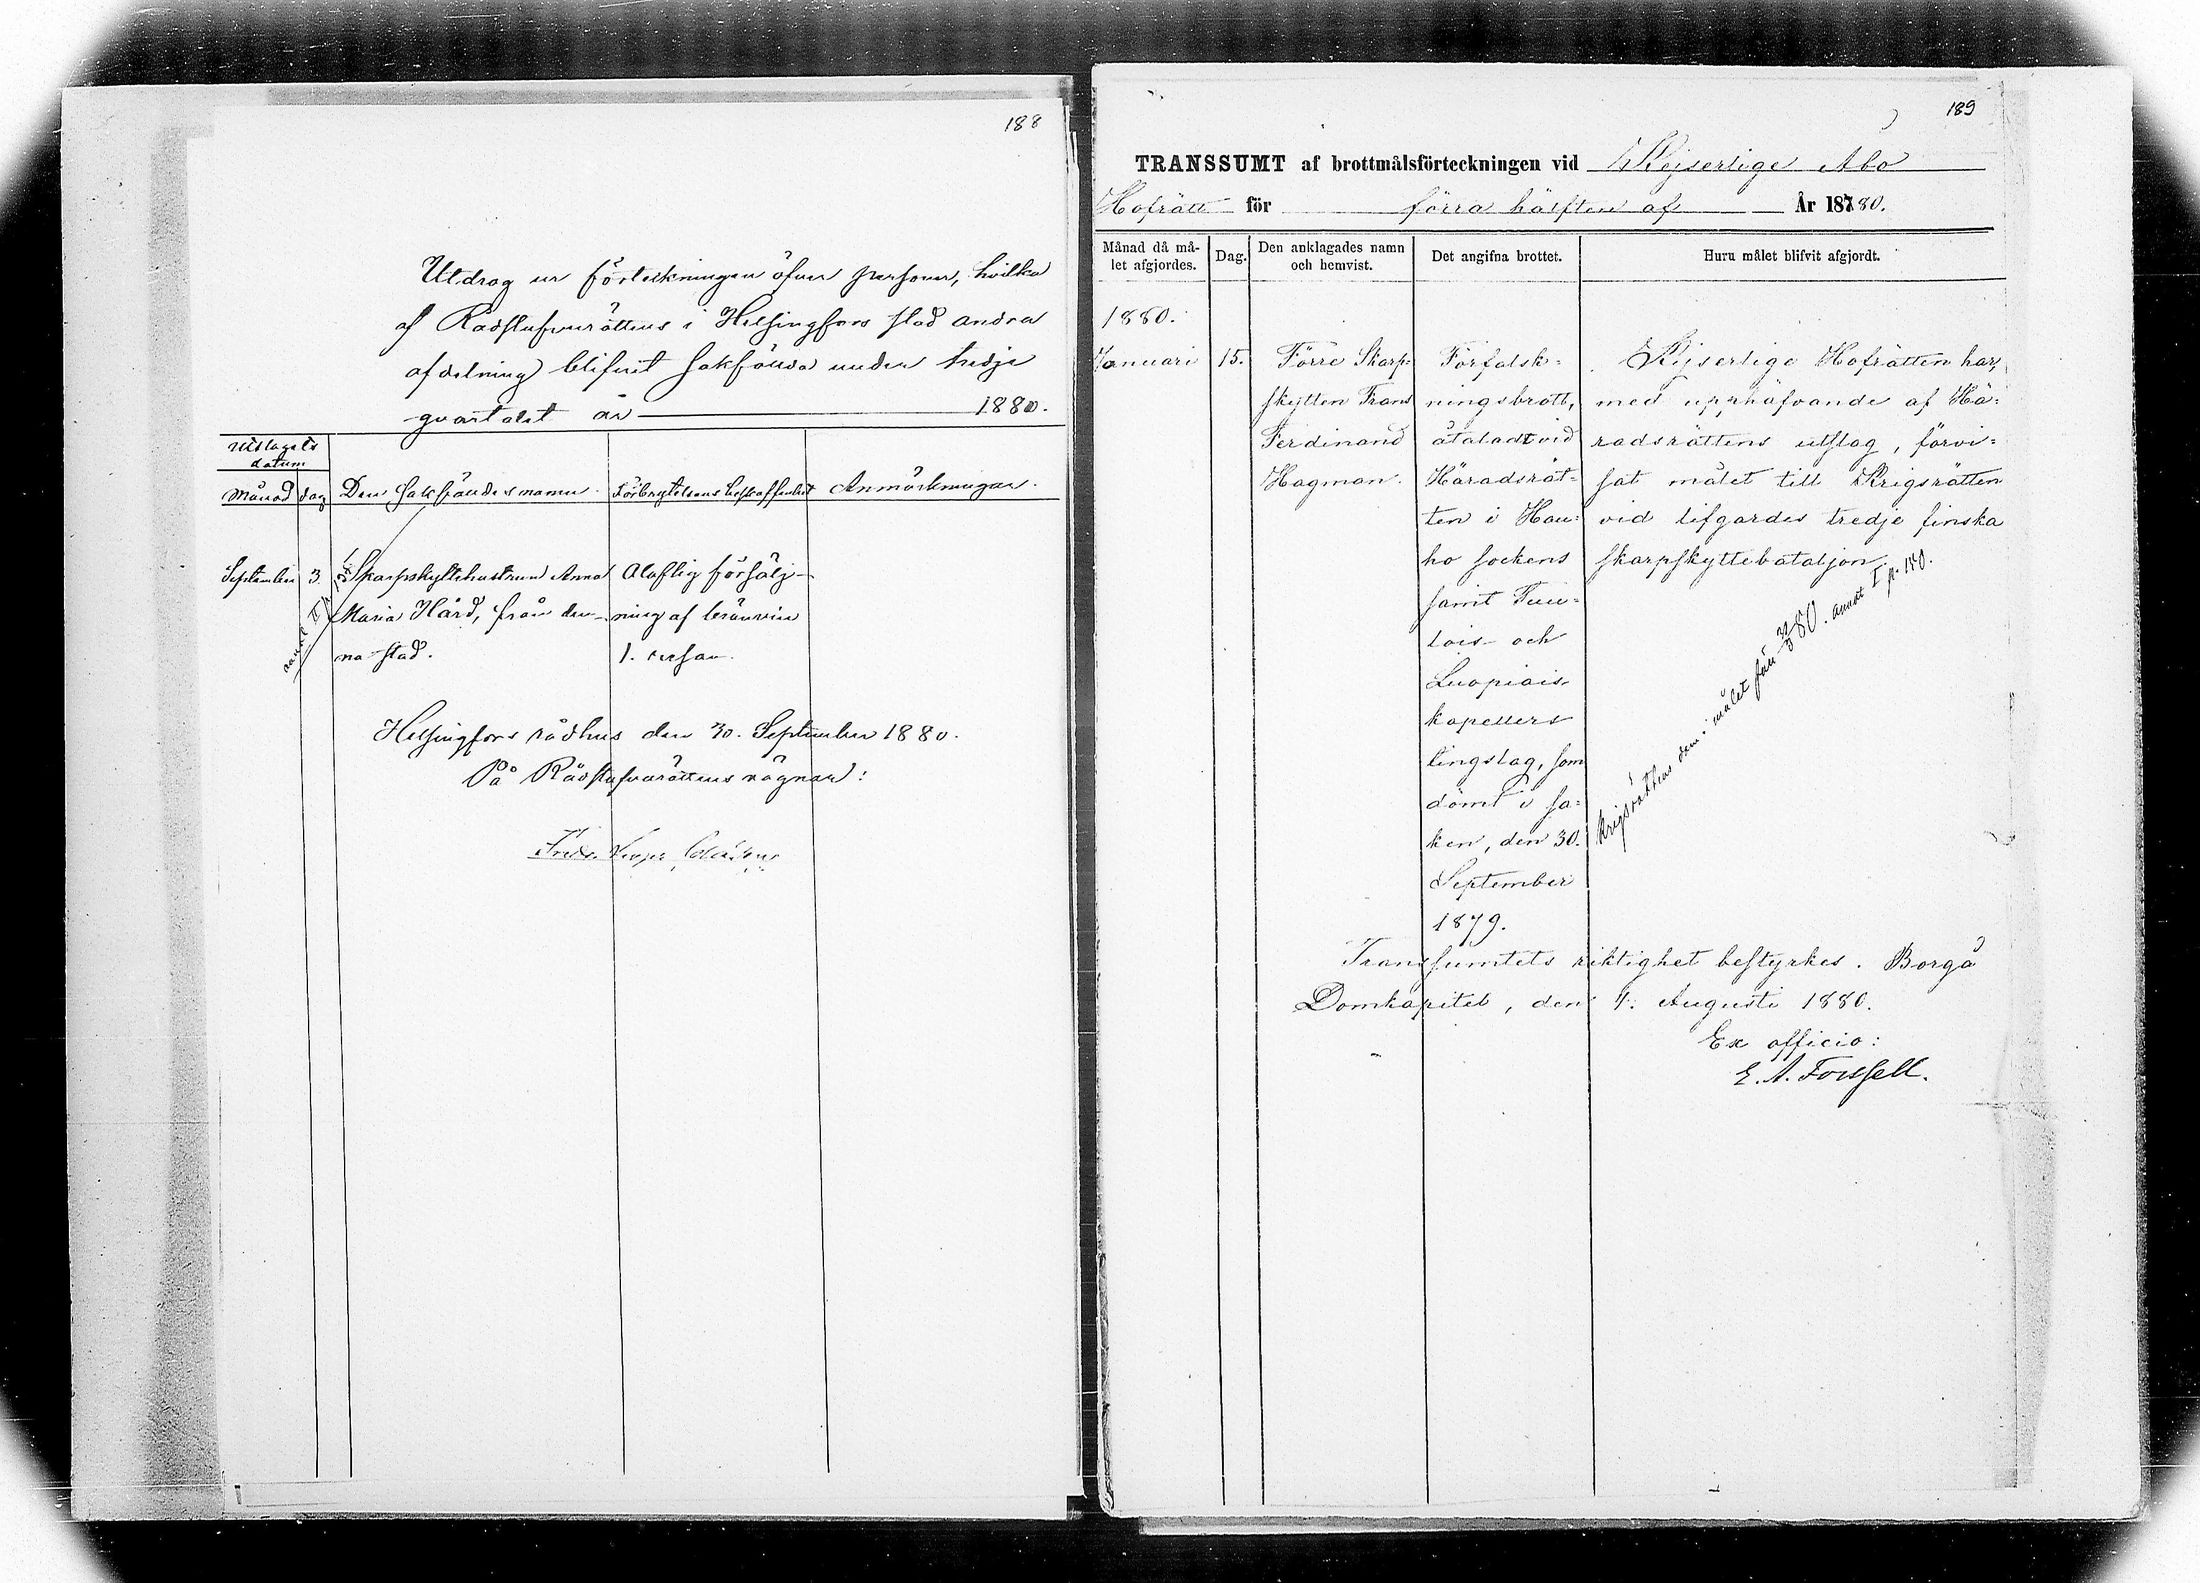 188
Utdrag ur förteckningen öfver personer, hvilka
af Rådstufvurättens i Helsingfors stad andra
afdelning blifvit sakfällda under tredje
qvartalet år 1880.
Utslagets
datum
Månad dag Den sakfälldes namn. Förbrytelsens beskaffenhet Anmärkningar.
September 3. Skarpskyttehustrun Anna Olaflig försälj-
Maria Hård, från den- ning af bränvin
na stad. 1. resan.
Helsingfors rådhus den 30. September 1880.
På Rådstufvurättens vägnar:
189
TRANSSUMT af brottmålsförteckningen vid Kejserlige Åbo
Hofrätt för förra hälften af År 18780.
Månad då må-
let afgjordes.
Dag.
Den anklagades namn
och hemvist.
Det angifna brottet.
Huru målet blifvit afgjordt.
1880.
Januari 15.
Förre Skarp-
skytten Frans
Ferdinand
Hagman.
Förfalsk-
ningsbrott,
åtaladt vid
Häradsrät-
ten i Hau-
ho sockens
samt Tuu-
lois och
Luopiois
kapellers
tingslag, som
dömt i sa-
ken, den 30.
September
1879.
Kejserlige Hofrätten har,
med upphäfvande af Hä-
radsrättens utslag, förvi-
sat målet till Krigsrätten
vid lifgardes tredje finska
skarpskyttebataljon.
Krigsrättens dom i målet från 80. annot I p. 150.
Transsumtets riktighet bestyrkes. Borgå
Domkapitel, den 4. Augusti 1880.
Ex officio:
E. A. Forssell.